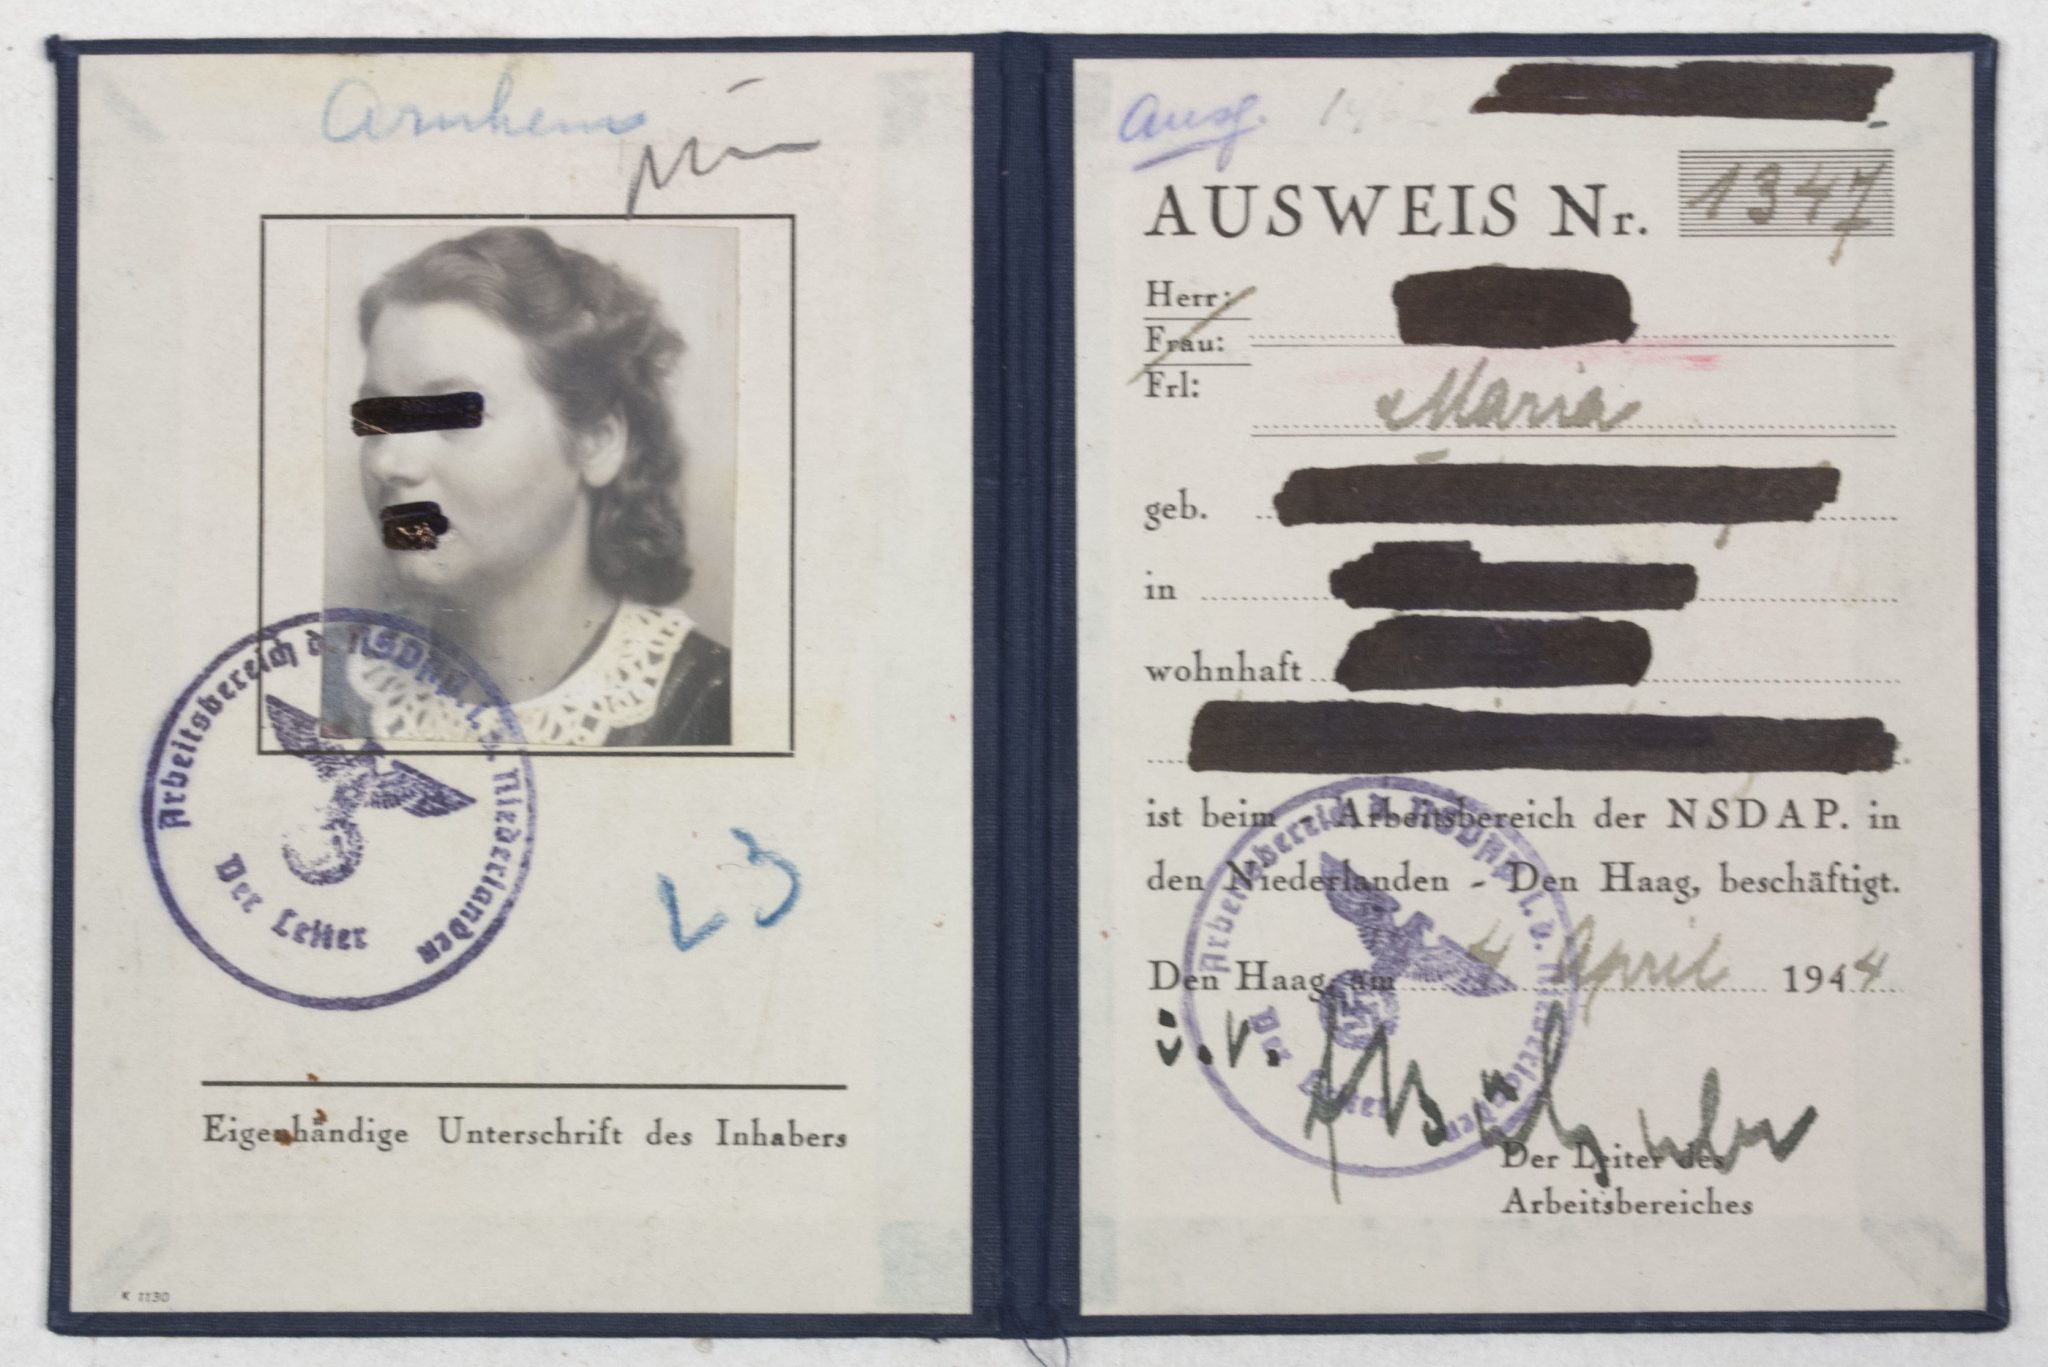 Arnhem
Arbeitsbereich d. NSDAP. i. d. Niederlanden
Der Leiter
L3
Eigenhändige Unterschrift des Inhabers
K 1130
Ausg.
AUSWEIS Nr. 1347
Herr:
Frau:
Frl:
Maria
geb.
in
wohnhaft
ist beim - Arbeitsbereich der NSDAP. in
den Niederlanden - Den Haag, beschäftigt.
Den Haag, am 4 April 1944
i.V.
Arbeitsbereich d. NSDAP. i. d. Niederlanden
Der Leiter
Der Leiter des
Arbeitsbereiches